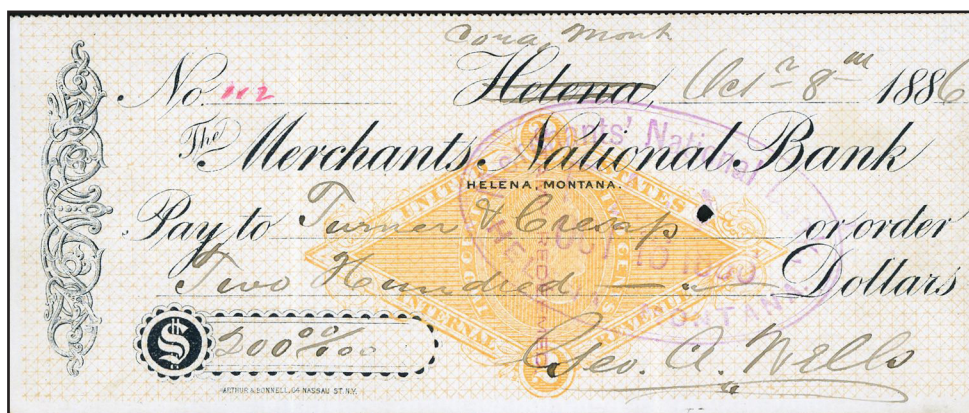 Cora, Mont
No. 112 Helena, Oct 8th 1886
The Merchants National Bank
HELENA, MONTANA.
Pay to Turner & Cresap or order
Two Hundred Dollars
$ 200 00/100
Geo. A. Wells
ARTHUR & BONNELL, 64 NASSAU ST. N.Y.
UNITED STATES
INTERNAL REVENUE
Merchants' National
OCT 13 1886
HELENA MONTANA